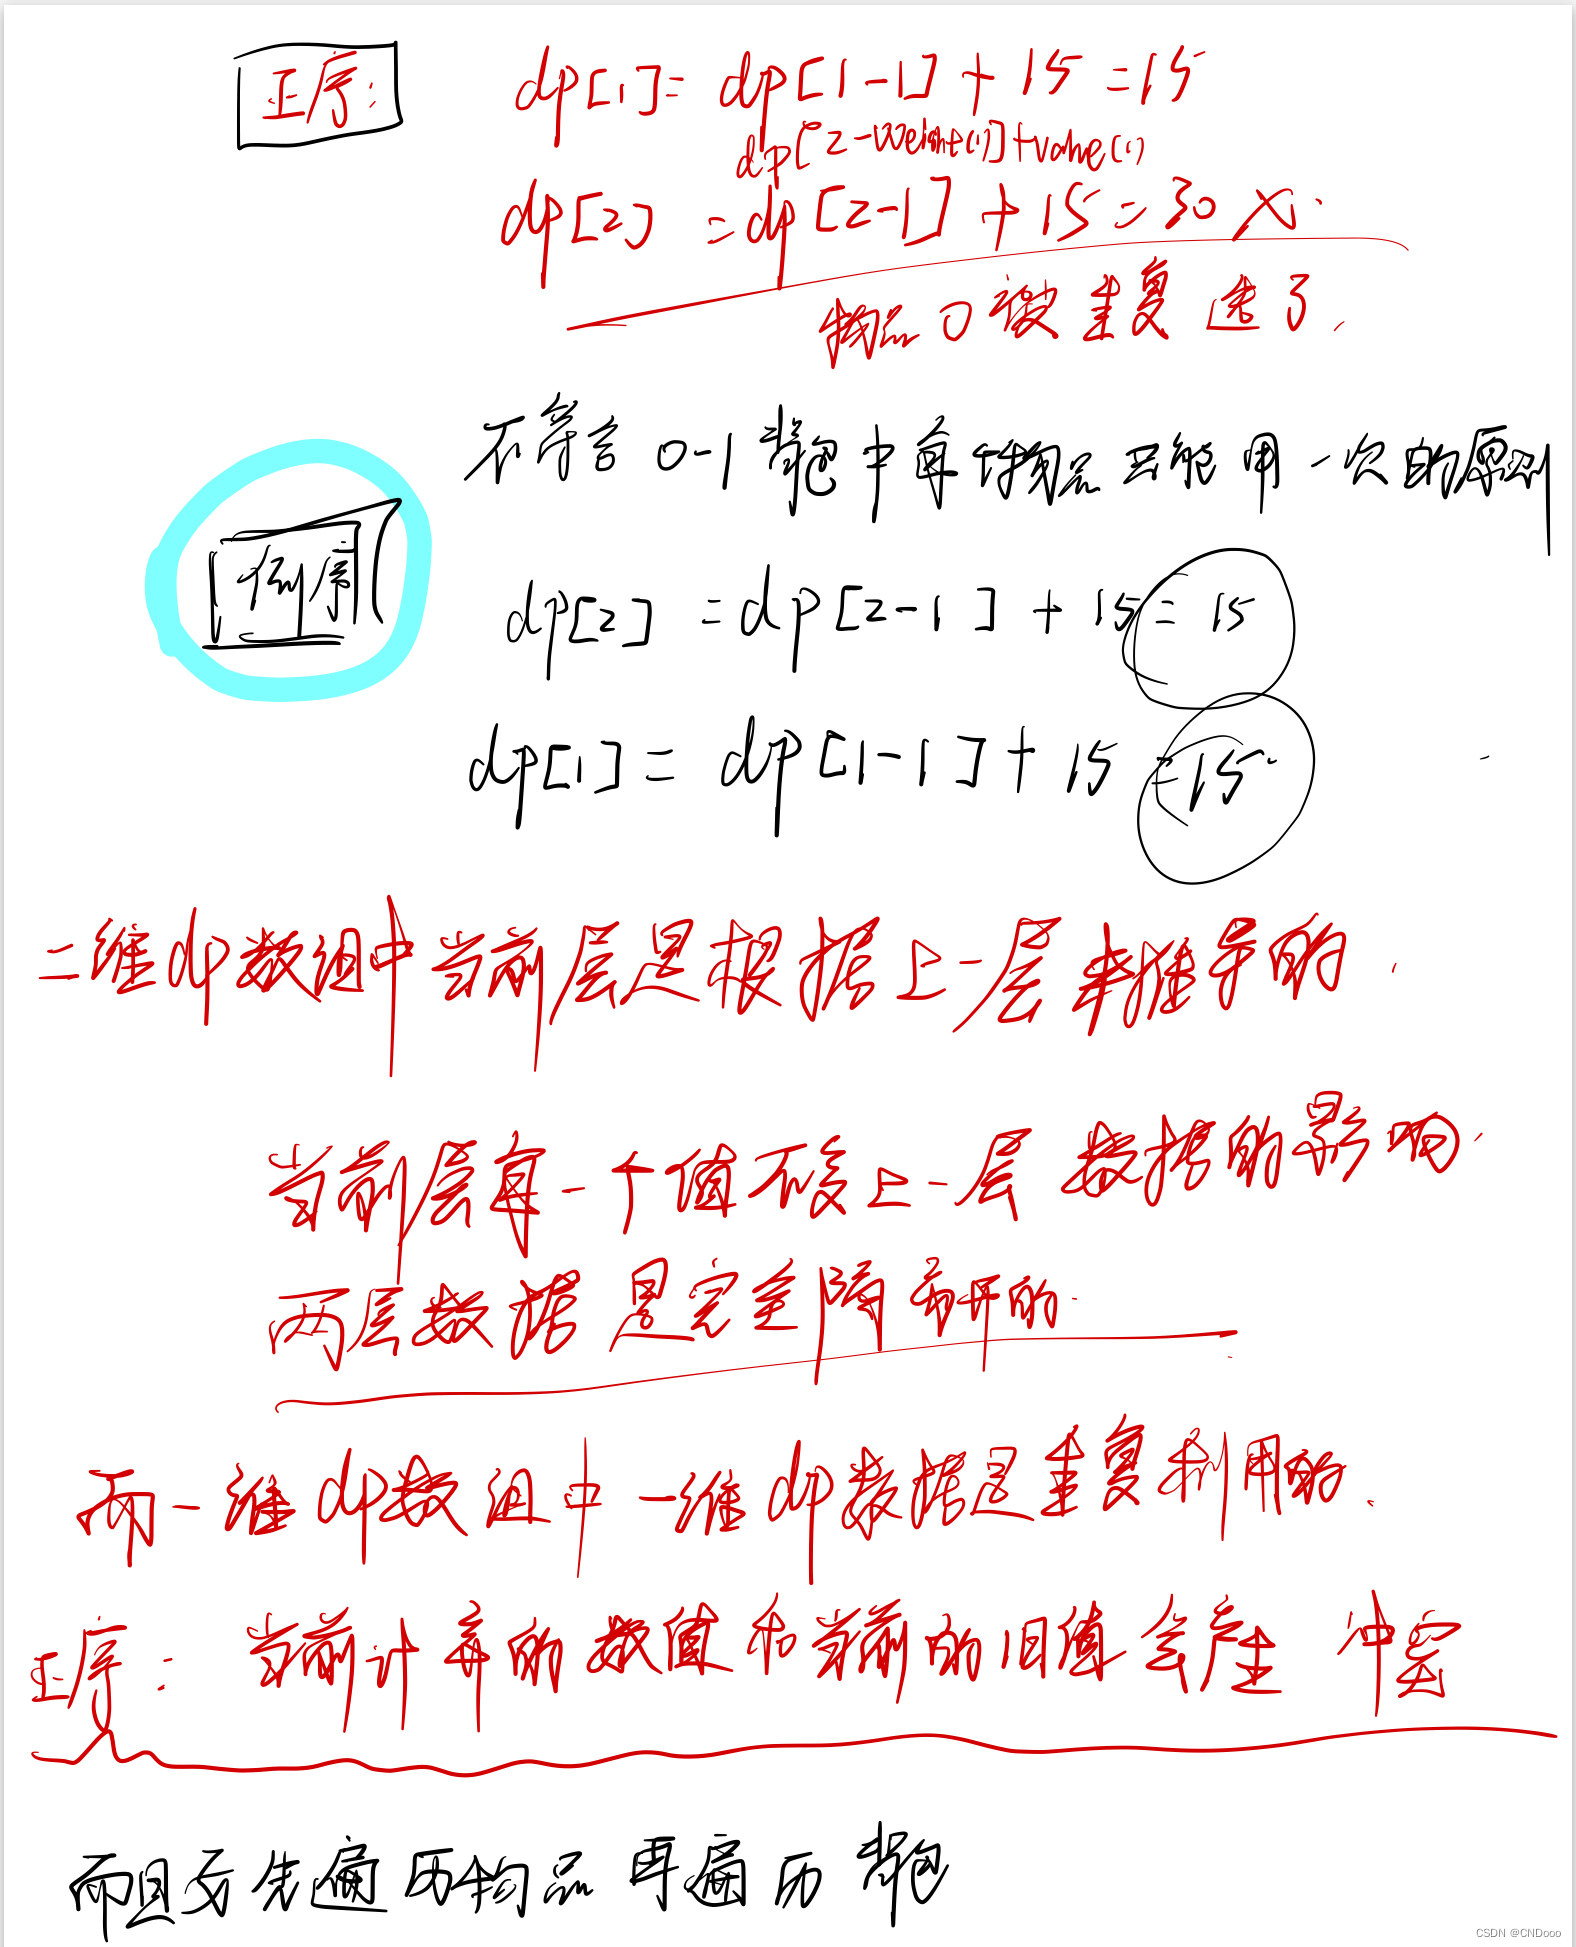 正序: dp[1]= dp[1-1]+15=15
dp[2-weight(1)]+value(1)
dp[2] =dp[2-1]+15=30 ×.
物品0被重复选了.
不符合 0-1背包中每件物品只能用一次的原则
倒序
dp[2] =dp[2-1]+15=15
dp[1]= dp[1-1]+15=15.
二维dp数组中当前层是根据上一层来推导的.
当前层每一个值不受上一层数据的影响.
两层数据是完全隔离开的.
而一维dp数组中一维dp数据是重复利用的.
正序: 当前计算的数值和当前的旧值会产生冲突
而且先遍历物品再遍历背包
CSDN @CNDooo